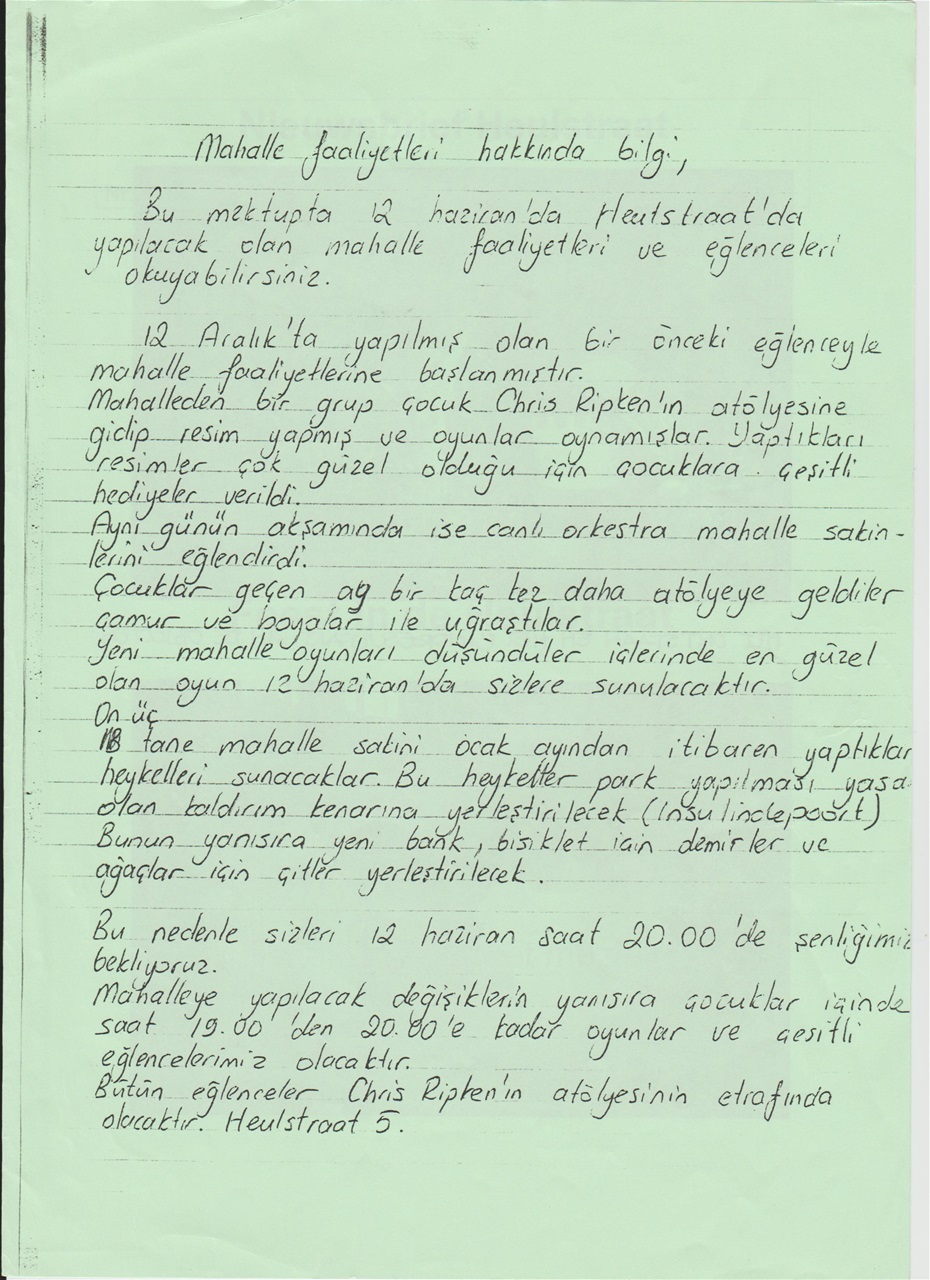 Mahalle faaliyetleri hakkında bilgi,
Bu mektupta 12 haziran'da Heulstraat'da
yapılacak olan mahalle faaliyetleri ve eğlenceleri
okuyabilirsiniz.
12 Aralık'ta yapılmış olan bir önceki eğlenceyle
mahalle faaliyetlerine başlanmıştır.
Mahalleden bir grup çocuk Chris Ripken'ın atölyesine
gidip resim yapmış ve oyunlar oynamışlar. Yaptıkları
resimler çok güzel olduğu için çocuklara çeşitli
hediyeler verildi.
Ayni günün akşamında ise canlı orkestra mahalle sakin-
lerini eğlendirdi.
Çocuklar geçen ay bir kaç kez daha atölyeye geldiler
çamur ve boyalar ile uğraştılar.
Yeni mahalle oyunları düşündüler içlerinde en güzel
olan oyun 12 haziran'da sizlere sunulacaktır.
On üç
tane mahalle sakini ocak ayından itibaren yaptıklar
heykelleri sunacaklar. Bu heykeller park yapılması yasa
olan kaldırım kenarına yerleştirilecek (Insulindepoort)
Bunun yanısıra yeni bank, bisiklet için demirler ve
ağaçlar için çitler yerleştirilecek.
Bu nedenle sizleri 12 haziran saat 20.00'de şenliğimiz
bekliyoruz.
Mahalleye yapılacak değişiklerin yanısıra çocuklar içinde
saat 19.00'den 20.00'e kadar oyunlar ve çeşitli
eğlencelerimiz olacaktır.
Bütün eğlenceler Chris Ripken'ın atölyesinin etrafında
olacaktır. Heulstraat 5.